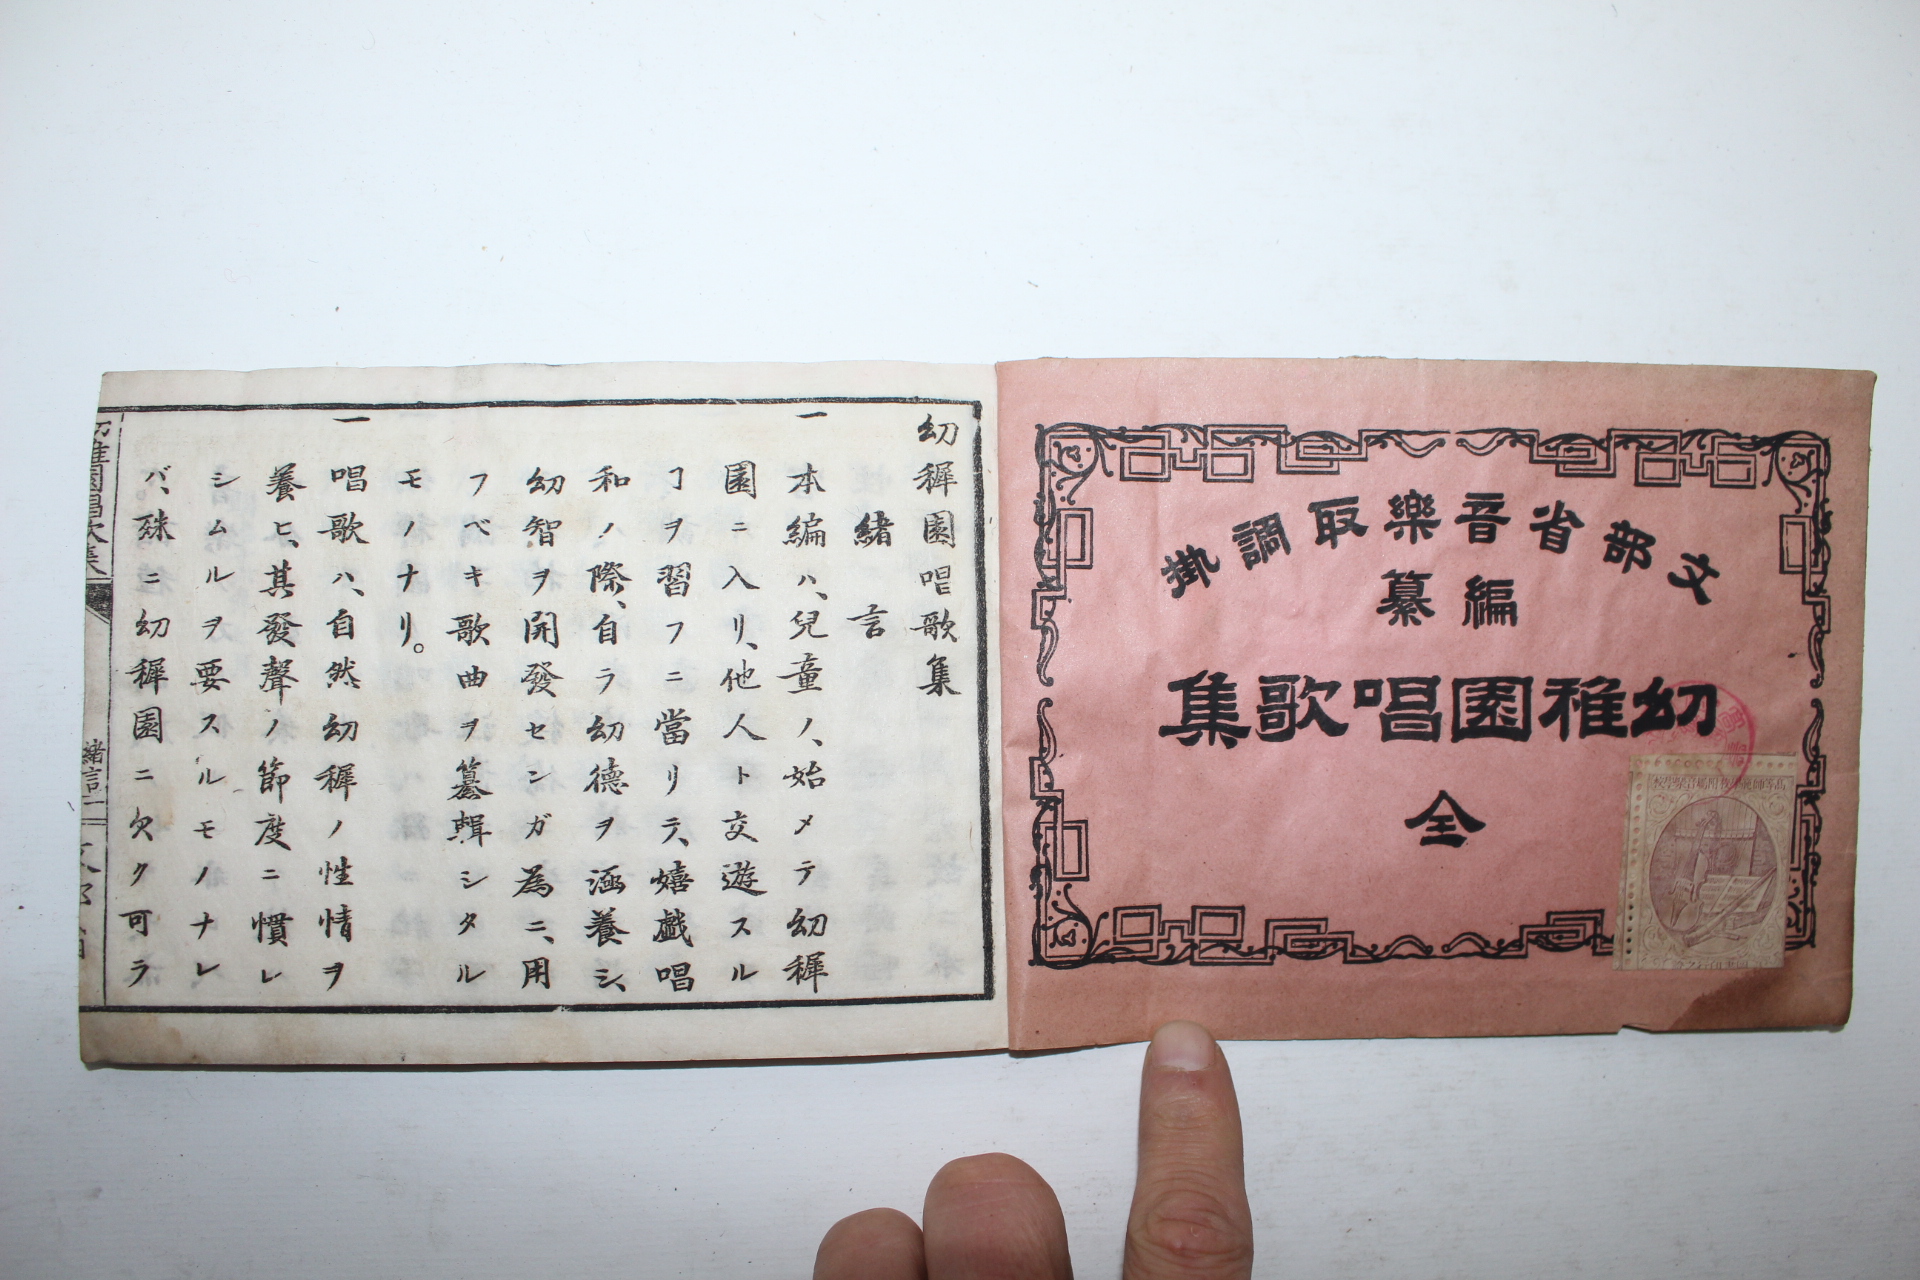 文部省音樂取調掛
編纂
幼稚園唱歌集
全
高等師範學校附屬音樂學校
幼穉園唱歌集
緒言
一
本編ハ、兒童ノ、始メテ幼穉
園ニ入リ、他人ト交遊スル
ヿヲ習フニ當リテ、嬉戯唱
和ノ際、自ラ幼德ヲ涵養シ、
幼智ヲ開發センガ為ニ、用
フベキ歌曲ヲ纂輯シタル
モノナリ。
一
唱歌ハ、自然幼穉ノ性情ヲ
養ヒ、其發聲ノ節度ニ慣レ
シムルヲ要スルモノナレ
バ、殊ニ幼穉園ニ欠ク可ラ
幼稚園唱歌集
緒言
一